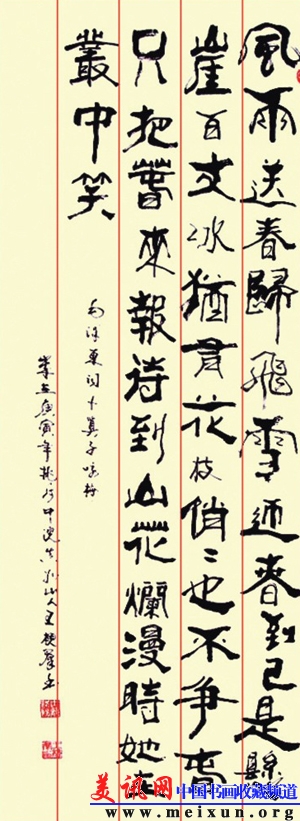 風雨送春歸飛雪迎春到已是懸
崖百丈冰猶有花枝俏〻也不爭春
只把春來報待到山花爛漫時她在
叢中笑
毛泽东词卜算子咏梅
庚寅年
美讯网 中国书画收藏频道
www.meixun.org